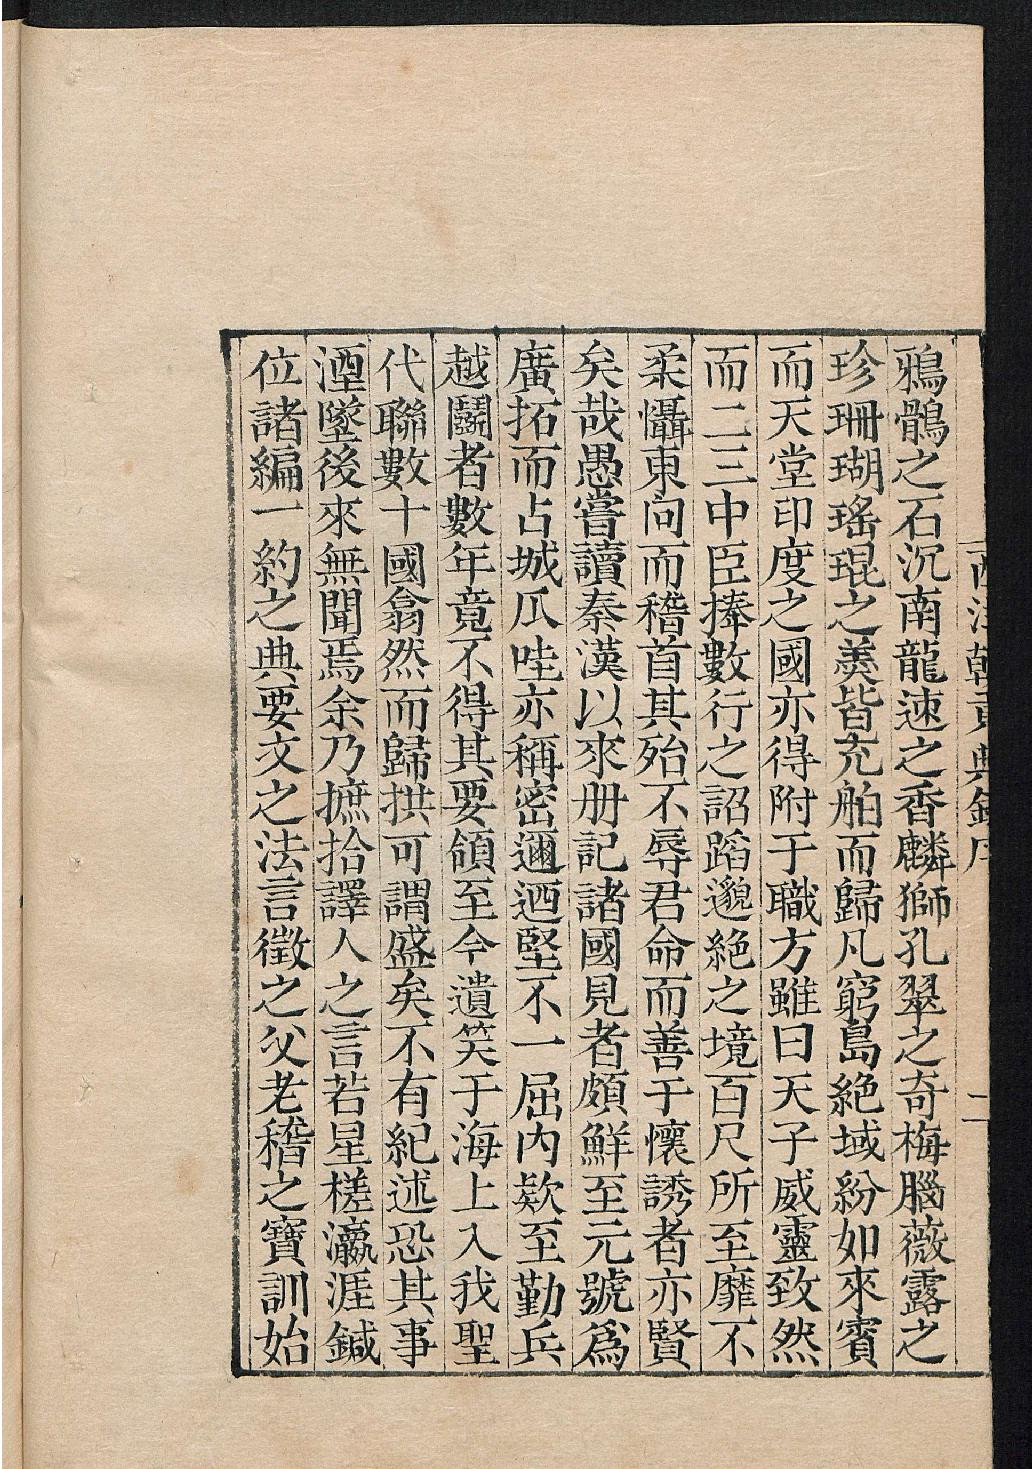 西洋朝貢典錄序 二
鴉鶻之石沉南龍速之香麟獅孔翠之奇梅腦薇露之
珍珊瑚瑤琨之美皆充舶而歸凡窮島絶域紛如來賓
而天堂印度之國亦得附于職方雖曰天子威靈致然
而二三中臣捧數行之詔蹈邈絶之境百尺所至靡不
柔懾東向而稽首其殆不辱君命而善于懷誘者亦賢
矣哉愚嘗讀秦漢以來册記諸國見者頗鮮至元號爲
廣拓而占城爪哇亦稱密邇迺堅不一屈内欵至勤兵
越鬭者數年竟不得其要領至今遺笑于海上入我聖
代聯數十國翕然而歸拱可謂盛矣不有紀述恐其事
湮墜後來無聞焉余乃摭拾譯人之言若星槎瀛涯鍼
位諸編一約之典要文之法言徵之父老稽之寶訓始